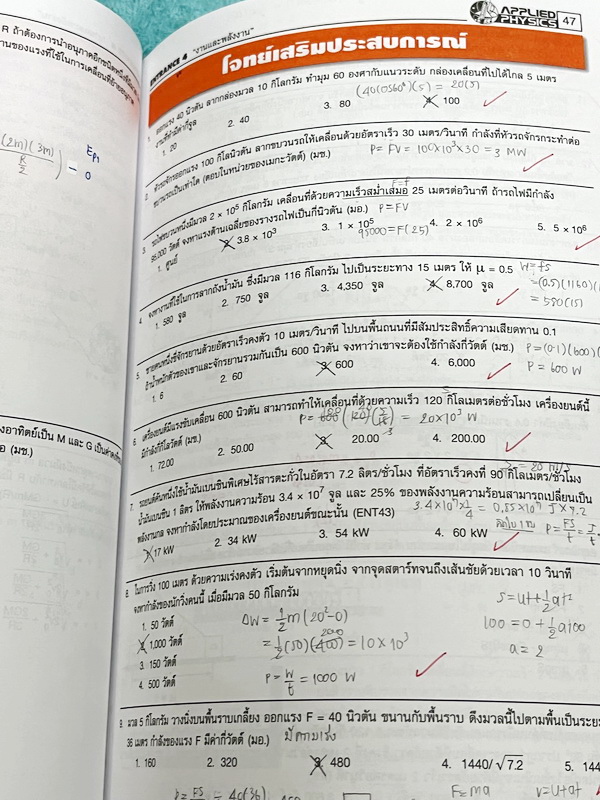 APPLIED PHYSICS 47
ENTRANCE 4 "งานและพลังงาน"
โจทย์เสริมประสบการณ์
1. ออกแรง 40 นิวตัน ลากกล่องมวล 10 กิโลกรัม ทำมุม 60 องศากับแนวระดับ กล่องเคลื่อนที่ไปได้ไกล 5 เมตร
(40cos60°)(5) = 20(5)
1. 20 2. 40 3. 80 4. 100
2. หัวรถจักรออกแรง 100 กิโลนิวตัน ลากขบวนรถให้เคลื่อนด้วยอัตราเร็ว 30 เมตร/วินาที กำลังที่หัวรถจักรกระทำต่อ
ขบวนรถเป็นเท่าใด (ตอบในหน่วยของเมกะวัตต์) (มช.) P = FV = 100×10³×30 = 3 MW
3. รถไฟขบวนหนึ่งมีมวล 2 × 10⁵ กิโลกรัม เคลื่อนที่ด้วยความเร็วสม่ำเสมอ 25 เมตรต่อวินาที ถ้ารถไฟมีกำลัง
95,000 วัตต์ จงหาแรงต้านเฉลี่ยของรางรถไฟเป็นกี่นิวตัน (มอ.) P = FV
95000 = F(25)
1. ศูนย์ 2. 3.8 × 10³ 3. 1 × 10⁵ 4. 2 × 10⁶ 5. 5 × 10⁶
4. จงหางานที่ใช้ในการลากถังน้ำมัน ซึ่งมีมวล 116 กิโลกรัม ไปเป็นระยะทาง 15 เมตร ให้ μ = 0.5 W = fs
= (0.5)(1160)(
1. 580 จูล 2. 750 จูล 3. 4,350 จูล 4. 8,700 จูล = 580(15)
5. ชายคนหนึ่งขี่จักรยานด้วยอัตราเร็วคงตัว 10 เมตร/วินาที ไปบนพื้นถนนที่มีสัมประสิทธิ์ความเสียดทาน 0.1
ถ้าน้ำหนักตัวของเขาและจักรยานรวมกันเป็น 600 นิวตัน จงหาว่าเขาจะต้องใช้กำลังกี่วัตต์ (มช.) P = (0.1)(600)(
1. 6 2. 60 3. 600 4. 6,000 P = 600 W
6. เครื่องยนต์มีแรงขับเคลื่อน 600 นิวตัน สามารถทำให้เคลื่อนที่ด้วยความเร็ว 120 กิโลเมตรต่อชั่วโมง เครื่องยนต์นี้
มีกำลังกี่กิโลวัตต์ (มช.) = 20×10³ W
1. 72.00 2. 50.00 3. 20.00 4. 200.00
7. รถยนต์คันหนึ่งใช้น้ำมันเบนซินพิเศษไร้สารตะกั่วในอัตรา 7.2 ลิตร/ชั่วโมง ที่อัตราเร็วคงที่ 90 กิโลเมตร/ชั่วโมง
น้ำมันเบนซิน 1 ลิตร ให้พลังงานความร้อน 3.4 × 10⁷ จูล และ 25% ของพลังงานความร้อนสามารถเปลี่ยนเป็น
พลังงานกล จงหากำลังโดยประมาณของเครื่องยนต์ขณะนั้น (ENT43)
1. 17 kW 2. 34 kW 3. 54 kW 4. 60 kW
8. ในการวิ่ง 100 เมตร ด้วยความเร่งคงตัว เริ่มต้นจากหยุดนิ่ง จากจุดสตาร์ทจนถึงเส้นชัยด้วยเวลา 10 วินาที
จงหากำลังของนักวิ่งคนนี้ เมื่อมีมวล 50 กิโลกรัม
1. 50 วัตต์ ΔW = ½m(20²-0) S = ut+½at²
2. 1,000 วัตต์ = ½(50)(400) = 10×10³ 100 = 0+½a100
3. 150 วัตต์ a = 2
4. 500 วัตต์ P = W/t = 1000 W
9. มวล 5 กิโลกรัม วางนิ่งบนพื้นราบเกลี้ยง ออกแรง F = 40 นิวตัน ขนานกับพื้นราบ ดึงมวลนี้ไปตามพื้นเป็นระยะ
36 เมตร กำลังของแรง F มีค่ากี่วัตต์ (มอ.) มีความเร่ง
1. 160 2. 320 3. 480 4. 1440/√7.2 5. 144
F = ma v = u+at